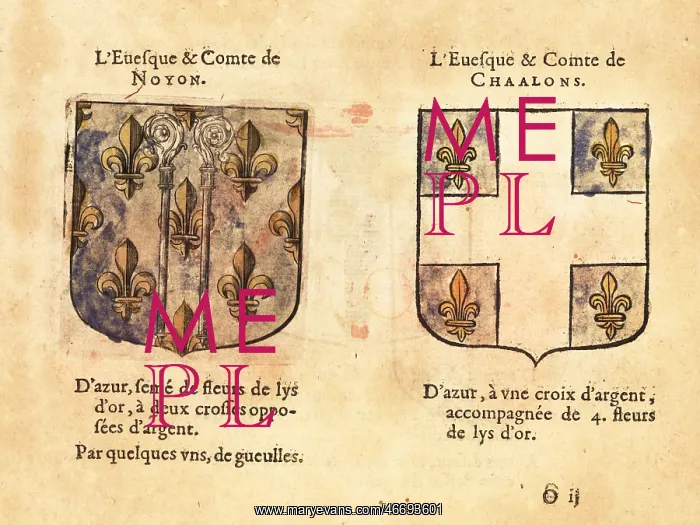 L'Euesque & Comte de
NOYON.
D'azur, semé de fleurs de lys
d'or, à deux crosses oppo-
sées d'argent.
Par quelques vns, de gueulles.
L'Euesque & Comte de
CHAALONS.
D'azur, à vne croix d'argent,
accompagnée de 4. fleurs
de lys d'or.
ij
ME
PL
ME
PL
www.maryevans.com/46693601